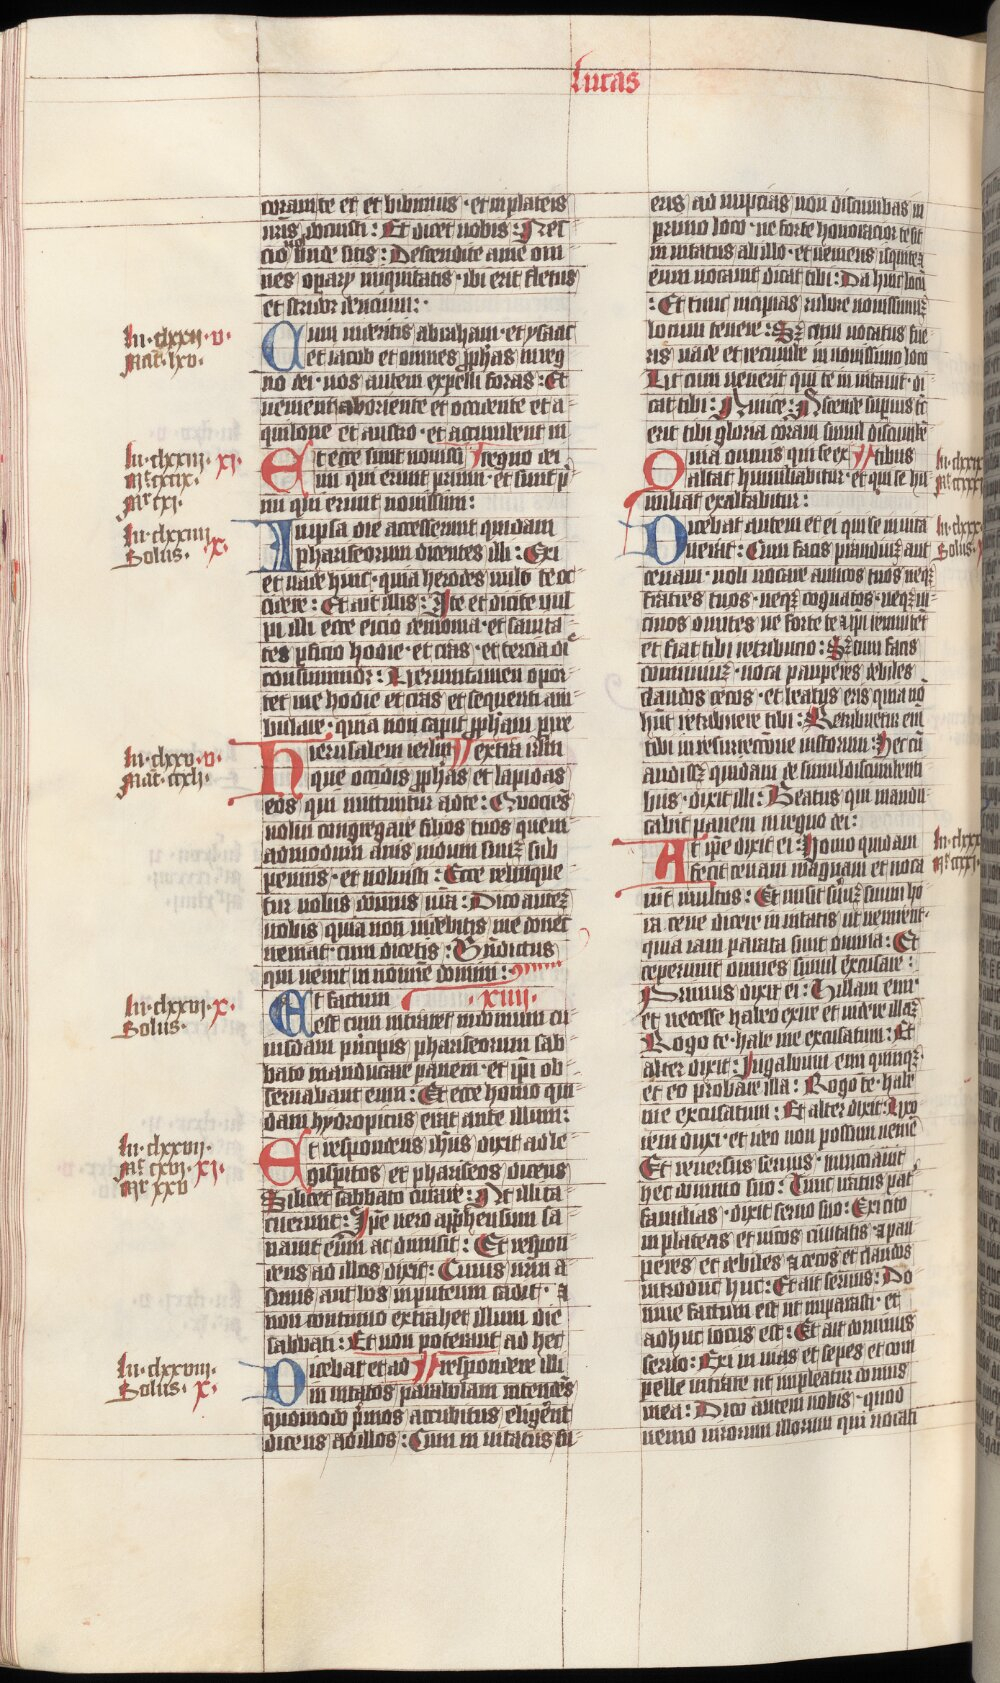 lucas
coram te et et bibimus · et in plateis
nr̄is docuisti : Et dicet uobis : Nes
cio uos unde sitis : Descendite a me om
nes opary iniquitatis · ibi erit fletus
et stridor dencium : ·
Cum uideritis abraham · et ysaac
et iacob et omnes ꝓphās in reg
no dei · uos autem expelli foras : Et
uenient ab oriente et occidente et a
quilone et austro · et accumbent in
Et ecce sunt nouissi // regno dei
mi qui erunt primi · et sunt p̄
mi qui erunt nouissimi :
In ipsa die accesserunt quidam
phariseorum dicentes illi : Exi
et uade hinc · quia herodes uult te oc
cidere : Et ait illis : Ite et dicite uul
pi illi ecce eicio demonia · et sanita
tes ꝑficio hodie · et cras · et tercia di
consummor : Ueruntamen opor
tet me hodie et cras et sequenti am
bulare · quia non capit ꝓpham pire
Hierusalem ierlm // extra irlm
que occidis ꝓphās et lapidas
eos qui mittuntur ad te : Quociens
uolui congregare filios tuos quem
admodum auis nidum suum sub
pennis · et noluisti : Ecce relinque
tur uobis domus ur̄a : Dico autem
uobis quia non uidebitis me donec
ueniat · cum dicetis : Bn̄dictus
qui uenit in nomine domini :
Et factum · xiiii ·
est cum intraret in domum cu
iusdam principis phariseorum sab
bato manducare panem · et ip̄i ob
seruabant eum : Et ecce homo qui
dam hydropicus erat ante illum :
Et respondens ih̄us dixit ad le
gispitos et phariseos dicens
Si licet sabbato curare : At illi ta
cuerunt : Ip̄e uero app̄hensum sa
nauit eum ac dimisit : Et respon
dens ad illos dixit : Cuius ur̄m a
sinus aut bos in puteum cadit · ⁊
non continuo extrahet illum die
sabbati : Et non poterant ad hec
Dicebat et ad // respondere illi
in uitatos parabolam intendēs
quomodo p̄mos accubitus eligent
dicens ad illos : Cum in uitatus fu
eris ad nupcias non discumbas in
primo loco · ne forte honoracior te sit
in uitatus ab illo · et ueniens is qui te ⁊
eum uocauit dicat tibi : Da huic locū
: Et tunc incipias rubore nouissimū
locum tenere : Sꝫ cum uocatus fue
ris uade et recumbe in nouissimo loco
Ut cum uenerit qui te in uitauit · di
cat tibi : Amice : Ascende supius tc̄
erit tibi gloria coram simul discumbē
Quia omnis qui se ex // tibus
altat humiliabitur · et qui se hu
miliat exaltabitur :
Dicebat autem et ei qui se in uita
uerat : Cum facis prandium aut
cenam · noli uocare amicos tuos neqꝫ
fratres tuos · neqꝫ cognatos · neqꝫ ui
cinos diuites ne forte te ⁊ ip̄i reinuitēt
et fiat tibi retribucio : Sꝫ cum facis
conuiuiū · uoca pauperes debiles
claudos cecos · et beatus eris quia nō
hn̄t retribuere tibi : Retribuetur em̄
tibi in resurrectione iustorum : Hec cū
audissꝫ quidam de simul discumbenti
bus · dixit illi : Beatus qui mandu
cabit panem in regno dei :
At ip̄e dixit ei : Homo quidam
fecit cenam magnam et uoca
uit multos : Et misit seruū suum ho
ra cene dicere in uitatis ut uenirent ·
quia iam parata sunt omnia : Et
ceperunt omnes simul excusare :
Primus dixit ei : Uillam emi
et necesse habeo exire et uidere illaꝫ
Rogo te · habe me excusatum : Et
alter dixit : Iuga bouum emi quinqꝫ ·
et eo probare illa : Rogo te · habe
me excusatum : Et alter dixit : Uxo
rem duxi · et ideo non possum uenire
Et reuersus seruus · nunciauit
hec domino suo : Tunc iratus pat̄
familias · dixit seruo suo : Exi cito
in plateas et uicos ciuitatis · ⁊ pau
peres et debiles ⁊ cecos et claudos
introduc huc : Et ait seruus : Do
mine factum est ut imperasti · et
adhuc locus est : Et ait dominus
seruo : Exi in uias et sepes et com
pelle intrare ut impleatur domus
mea : Dico autem uobis · quod
nemo uirorum illorum qui uocati
lu · clxxii · v ·
Mat · lxv ·
lu · clxxiii · xi ·
Mt̄ cxcix ·
Mr̄ cxi ·
lu · clxxiiii
Solus · x ·
lu · clxxv · v ·
Mat · ccxli ·
lu · clxxvi · x ·
Solus ·
lu · clxxvii ·
Mt̄ cxvi · xi ·
Mr xxv
lu · clxxviii ·
Solus · x ·